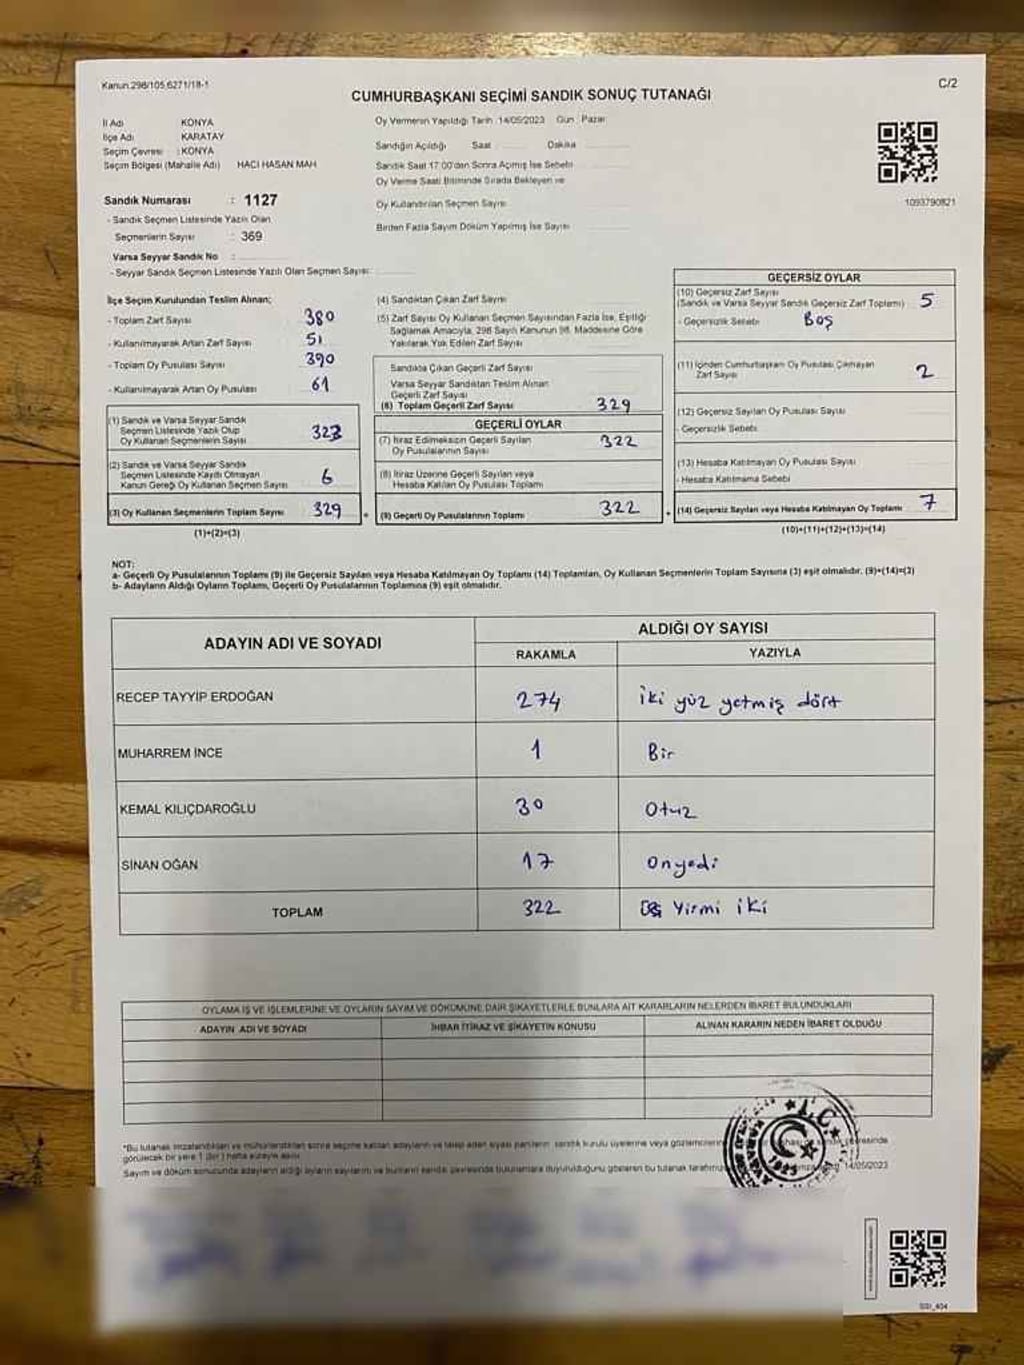 Kanun.298/105,6271/18-1
C/2
CUMHURBAŞKANI SEÇİMİ SANDIK SONUÇ TUTANAĞI
İl Adı KONYA
İlçe Adı KARATAY
Seçim Çevresi : KONYA
Seçim Bölgesi (Mahalle Adı) HACI HASAN MAH
Oy Vermenin Yapıldığı Tarih :14/05/2023 Gün : Pazar
Sandığın Açıldığı Saat Dakika
Sandık Saat 17:00'den Sonra Açılmış İse Sebebi
Oy Verme Saati Bitiminde Sırada Bekleyen ve
Oy Kullandırılan Seçmen Sayısı
Birden Fazla Sayım Döküm Yapılmış İse Sayısı
1093790821
Sandık Numarası : 1127
- Sandık Seçmen Listesinde Yazılı Olan
Seçmenlerin Sayısı : 369
Varsa Seyyar Sandık No :
- Seyyar Sandık Seçmen Listesinde Yazılı Olan Seçmen Sayısı:
İlçe Seçim Kurulundan Teslim Alınan;
- Toplam Zarf Sayısı 380
- Kullanılmayarak Artan Zarf Sayısı 51
- Toplam Oy Pusulası Sayısı 390
- Kullanılmayarak Artan Oy Pusulası 61
(1) Sandık ve Varsa Seyyar Sandık
Seçmen Listesinde Yazılı Olup
Oy Kullanan Seçmenlerin Sayısı 323
(2) Sandık ve Varsa Seyyar Sandık
Seçmen Listesinde Kaydı Olmayan
Kanun Gereği Oy Kullanan Seçmen Sayısı 6
(3) Oy Kullanan Seçmenlerin Toplam Sayısı 329 =
(1)+(2)=(3)
(4) Sandıktan Çıkan Zarf Sayısı
(5) Zarf Sayısı Oy Kullanan Seçmen Sayısından Fazla İse, Eşitliği
Sağlamak Amacıyla, 298 Sayılı Kanunun 98. Maddesine Göre
Yakılarak Yok Edilen Zarf Sayısı
Sandıkta Çıkan Geçerli Zarf Sayısı
Varsa Seyyar Sandıktan Teslim Alınan
Geçerli Zarf Sayısı
(6) Toplam Geçerli Zarf Sayısı 329
GEÇERLİ OYLAR
(7) İtiraz Edilmeksizin Geçerli Sayılan
Oy Pusulalarının Sayısı 322
(8) İtiraz Üzerine Geçerli Sayılan veya
Hesaba Katılan Oy Pusulası Toplamı
(9) Geçerli Oy Pusulalarının Toplamı 322 +
GEÇERSİZ OYLAR
(10) Geçersiz Zarf Sayısı
(Sandık ve Varsa Seyyar Sandık Geçersiz Zarf Toplamı) 5
- Geçersizlik Sebebi Boş
(11) İçinden Cumhurbaşkanı Oy Pusulası Çıkmayan
Zarf Sayısı 2
(12) Geçersiz Sayılan Oy Pusulası Sayısı
- Geçersizlik Sebebi
(13) Hesaba Katılmayan Oy Pusulası Sayısı
- Hesaba Katılmama Sebebi
(14) Geçersiz Sayılan veya Hesaba Katılmayan Oy Toplamı 7
(10)+(11)+(12)+(13)=(14)
NOT:
a- Geçerli Oy Pusulalarının Toplamı (9) ile Geçersiz Sayılan veya Hesaba Katılmayan Oy Toplamı (14) Toplamları, Oy Kullanan Seçmenlerin Toplam Sayısına (3) eşit olmalıdır. (9)+(14)=(3)
b- Adayların Aldığı Oyların Toplamı, Geçerli Oy Pusulalarının Toplamına (9) eşit olmalıdır.
ADAYIN ADI VE SOYADI ALDIĞI OY SAYISI
RAKAMLA YAZIYLA
RECEP TAYYİP ERDOĞAN 274 iki yüz yetmiş dört
MUHARREM İNCE 1 Bir
KEMAL KILIÇDAROĞLU 30 Otuz
SİNAN OĞAN 17 Onyedi
TOPLAM 322 Yirmi iki
OYLAMA İŞ VE İŞLEMLERİNE VE OYLARIN SAYIM VE DÖKÜMÜNE DAİR ŞİKAYETLERLE BUNLARA AİT KARARLARIN NELERDEN İBARET BULUNDUKLARI
ADAYIN ADI VE SOYADI İHBAR İTİRAZ VE ŞİKAYETİN KONUSU ALINAN KARARIN NEDEN İBARET OLDUĞU
*Bu tutanak imzalandıktan ve mühürlendikten sonra seçime katılan adayların ve talep eden siyasi partilerin sandık kurulu üyelerine veya gözlemcilerine
görülecek bir yere 1 (bir) hafta süreyle asılır.
Sayım ve döküm sonucunda adayların aldığı oyların sayılarını ve bunların sandık çevresinde bulunanlara duyurulduğunu gösteren bu tutanak 14/05/2023
T.C.